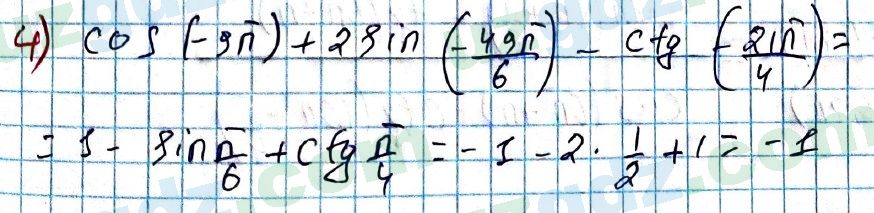 4) cos (-9π) + 2 sin (-49π/6) - ctg (-21π/4) =
= 1 - sin π/6 + ctg π/4 = -1 - 2 · 1/2 + 1 = -1